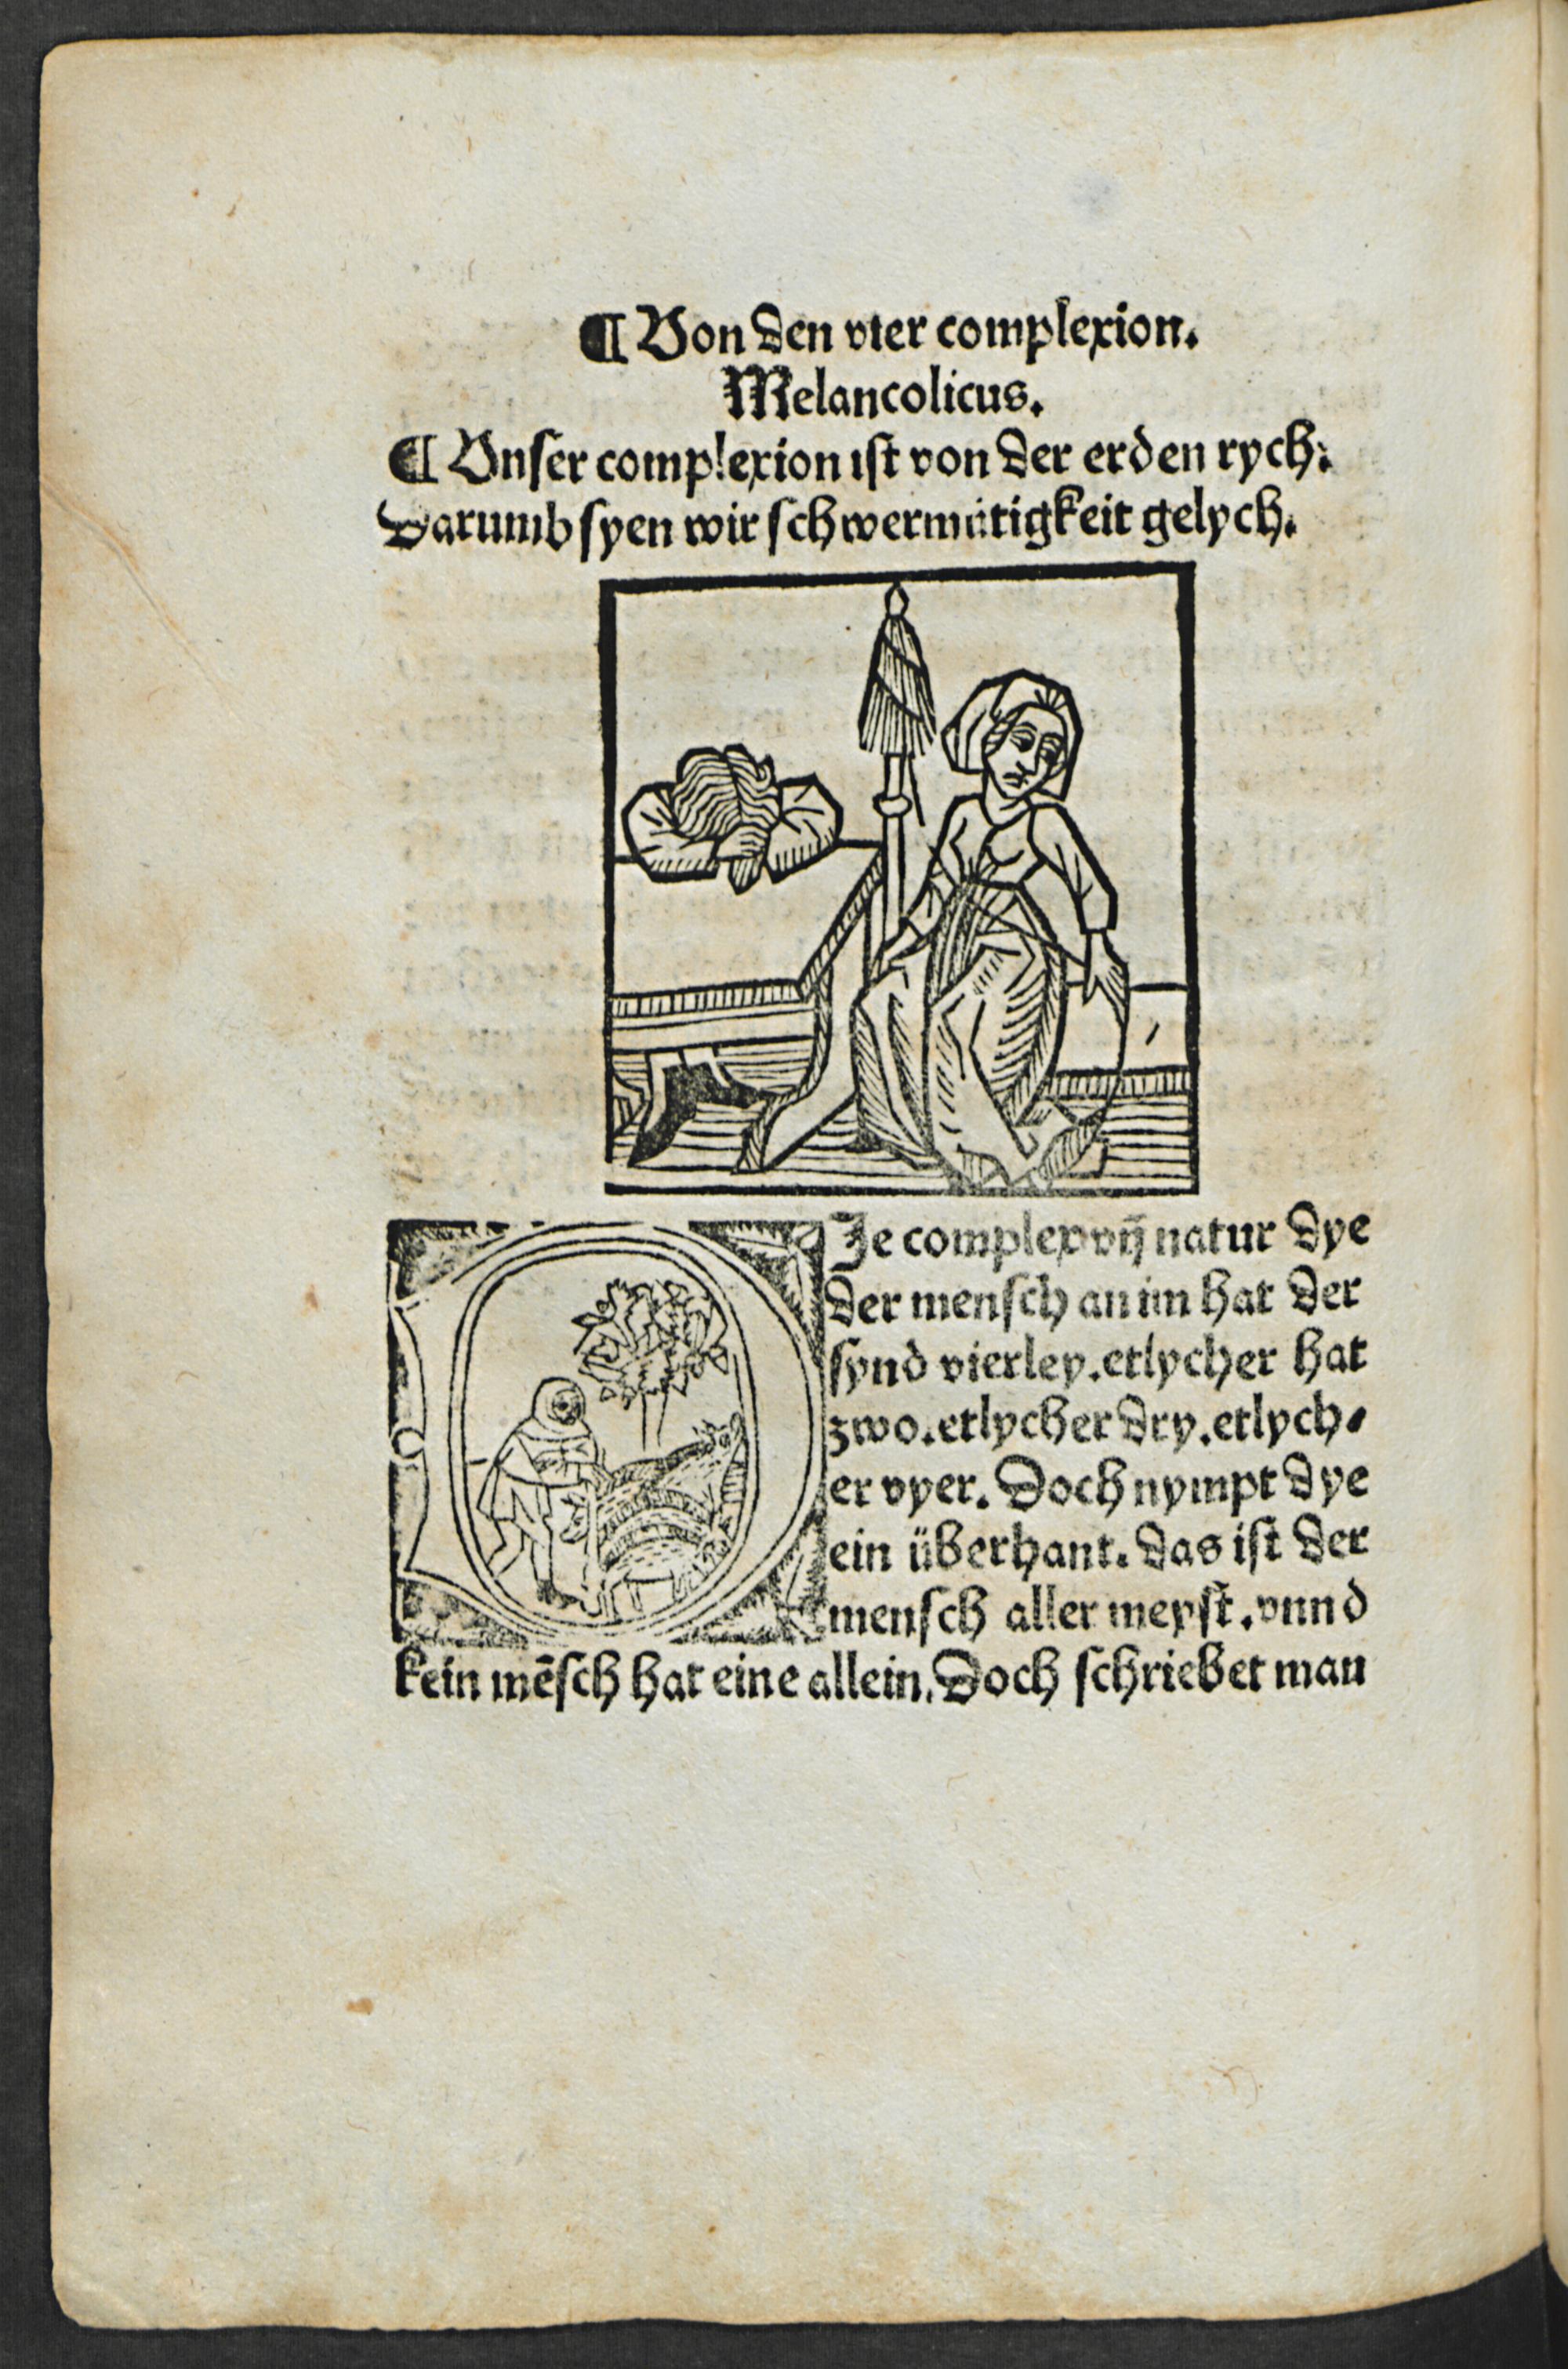 ¶ Von den vier complexion.
Melancolicus.
¶ Vnser complexion ist von der erden rych:
Darumb syen wir schwermütigkeit gelych.
DJe complex vñ natur dye
der mensch an im hat der
synd vierley. etlycher hat
zwo. etlycher dry. etlych⸗
er vyer. Doch nympt dye
ein überhant. das ist der
mensch aller meyst. vnnd
kein mēsch hat eine allein. Doch schriebet man